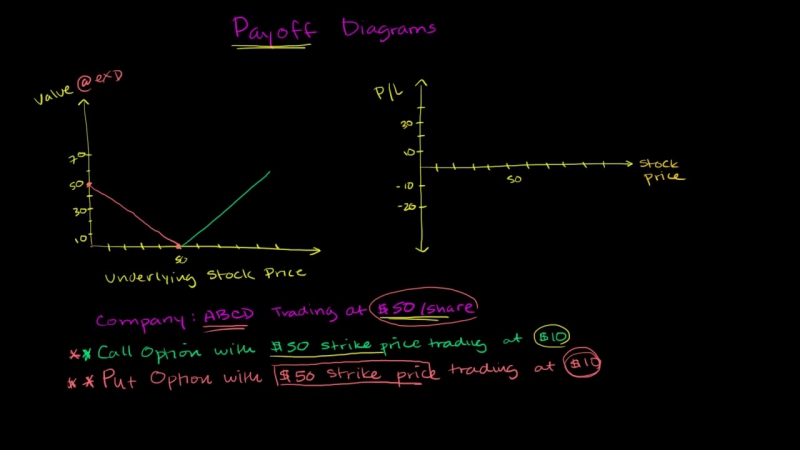 Payoff Diagrams
Value @ exD
70
50
30
10
50
Underlying Stock Price
P/L
30
10
-10
-20
50
Stock Price
Company: ABCD Trading at $50/share
** Call Option with $50 strike price trading at $10
** Put Option with $50 strike price trading at $10